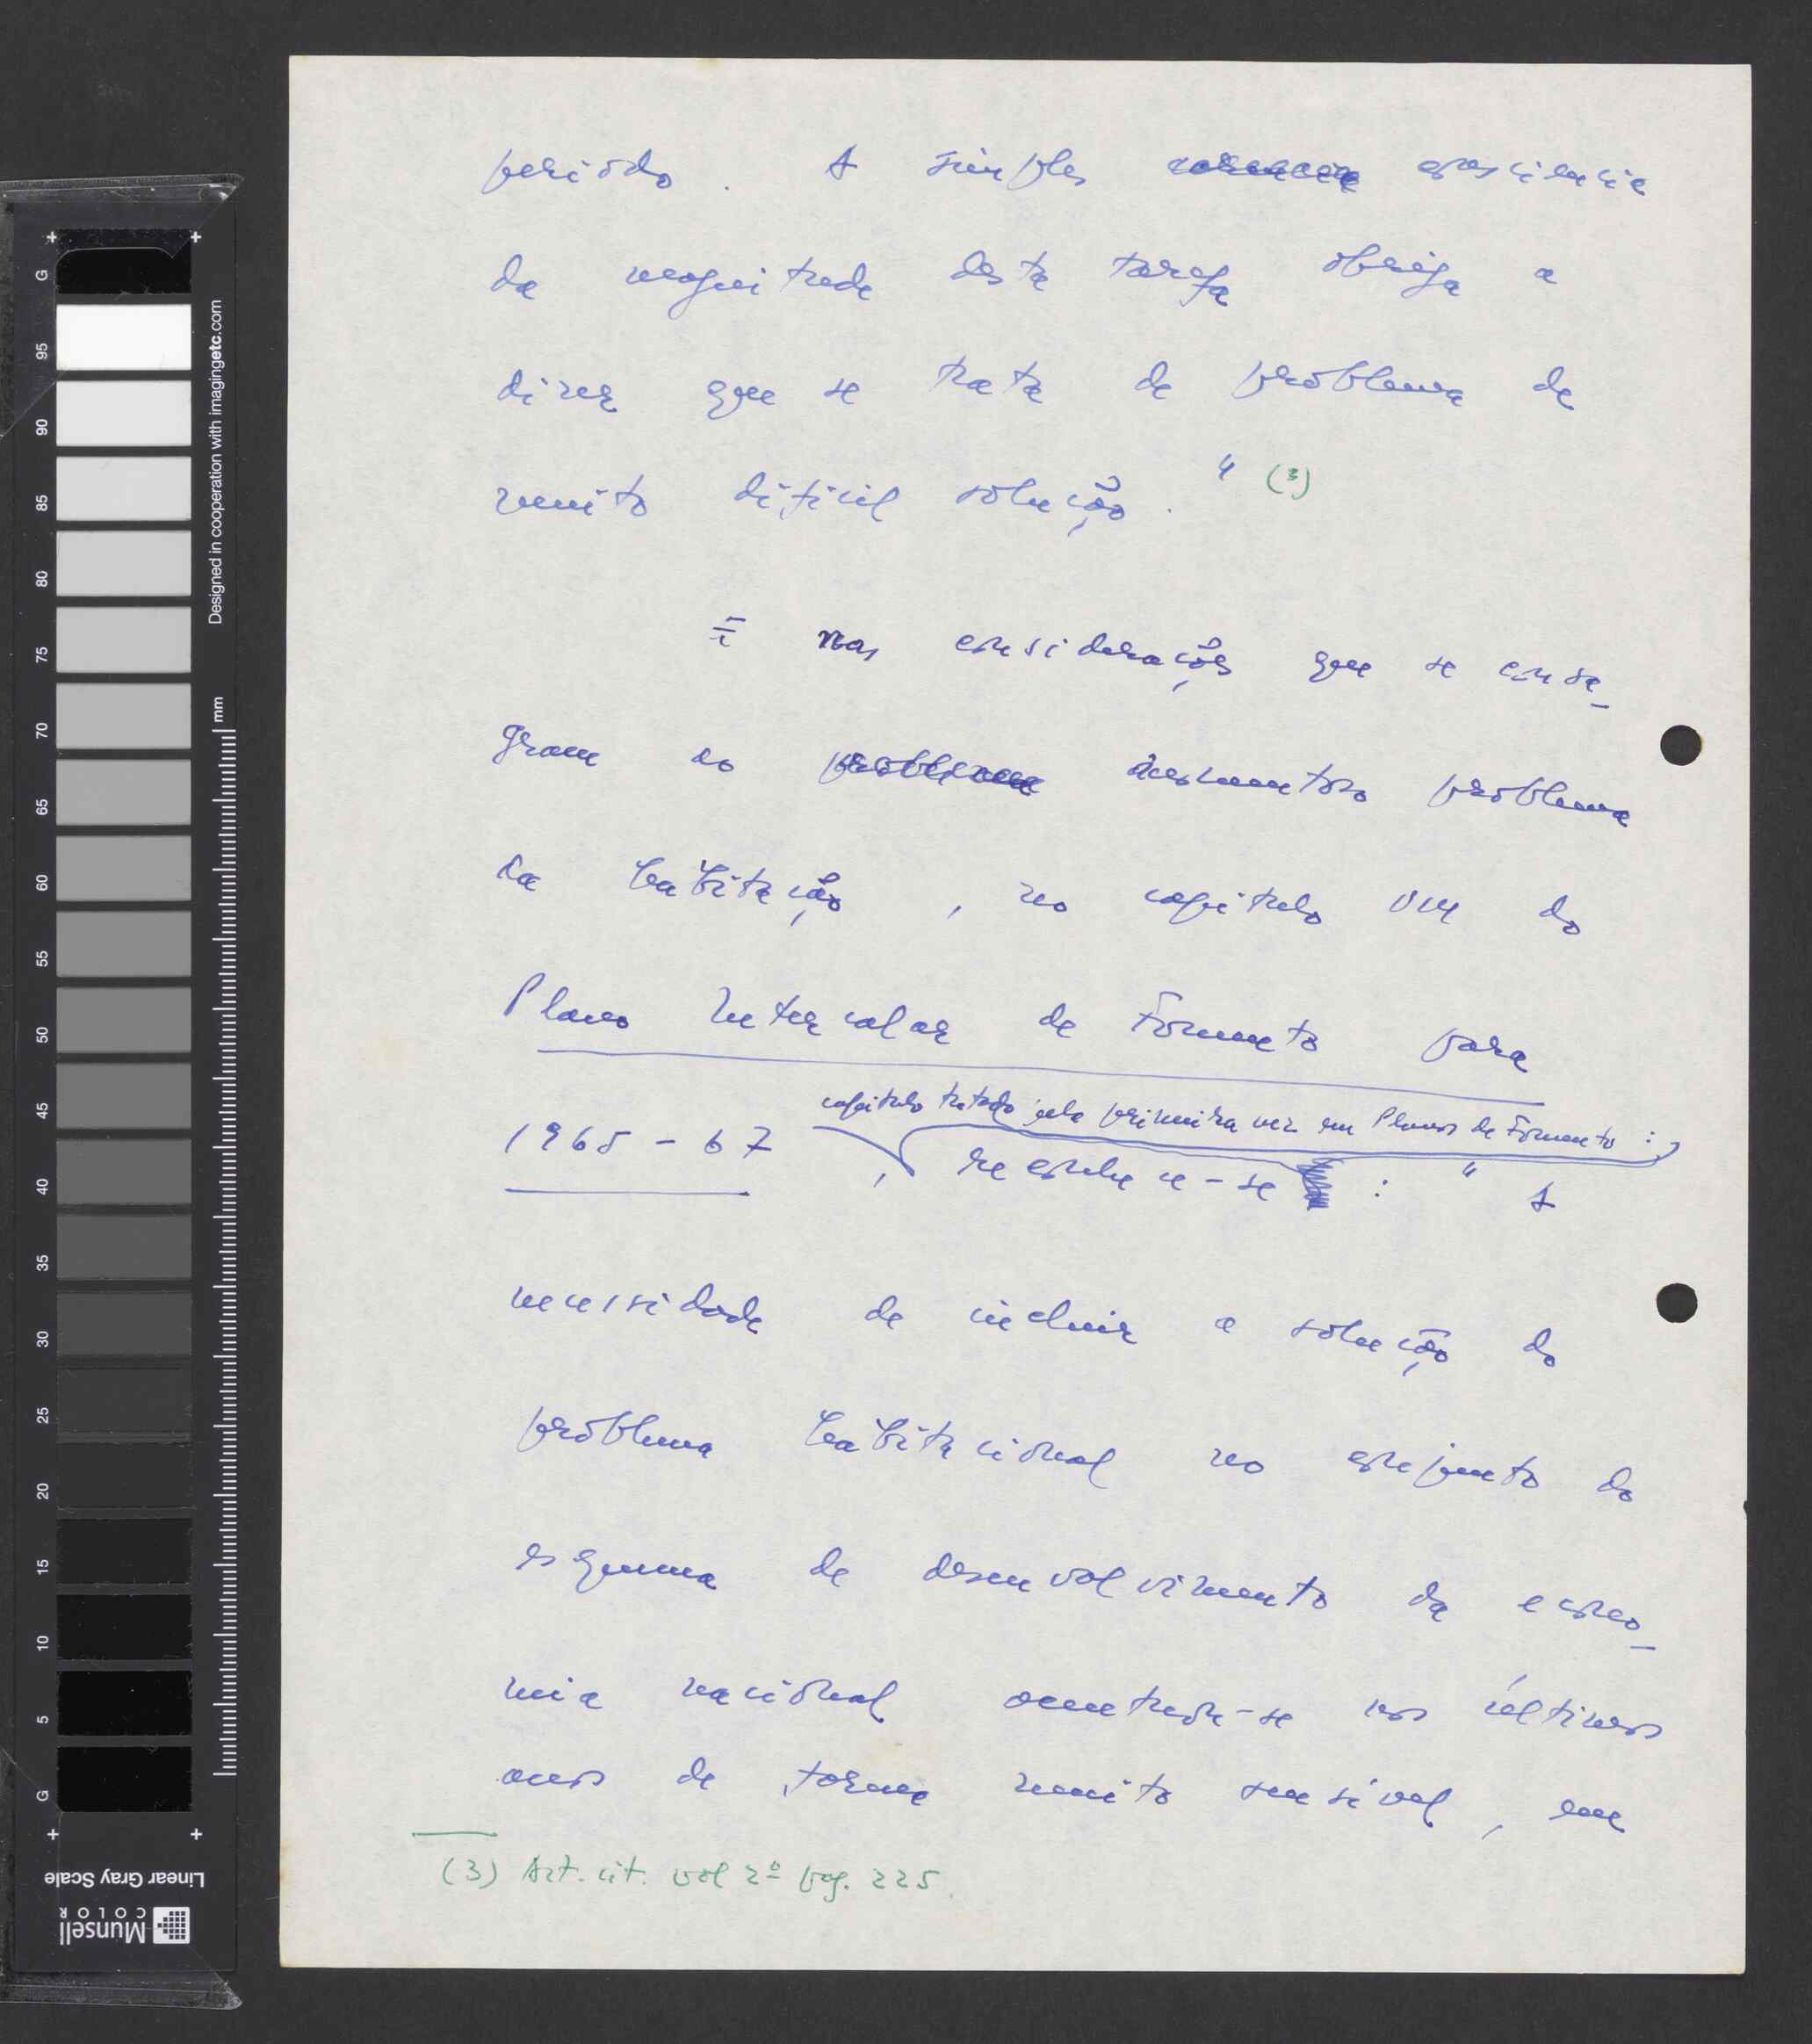 período. A simples consciência
da magnitude desta tarefa obriga a
dizer que se trata de problema de
muito difícil solução." (3)
E nas considerações que se consa-
gram ao problema problema
da habitação, no capítulo VIII do
Plano Intercalar de Fomento para
capítulo tratado pela primeira vez em Planos de Fomento:
1965-67, reconhece-se: "A
necessidade de incluir a solução do
problema habitacional no conjunto do
esquema de desenvolvimento da econo-
mia nacional acentuou-se nos últimos
anos de forma muito sensível, em
(3) Art. cit. vol 2º pag. 225.
G
95
90
85
80
75
70
65
60
55
50
45
40
35
30
25
20
15
10
5
G
mm
Designed in cooperation with imagingetc.com
Linear Gray Scale
Munsell
COLOR